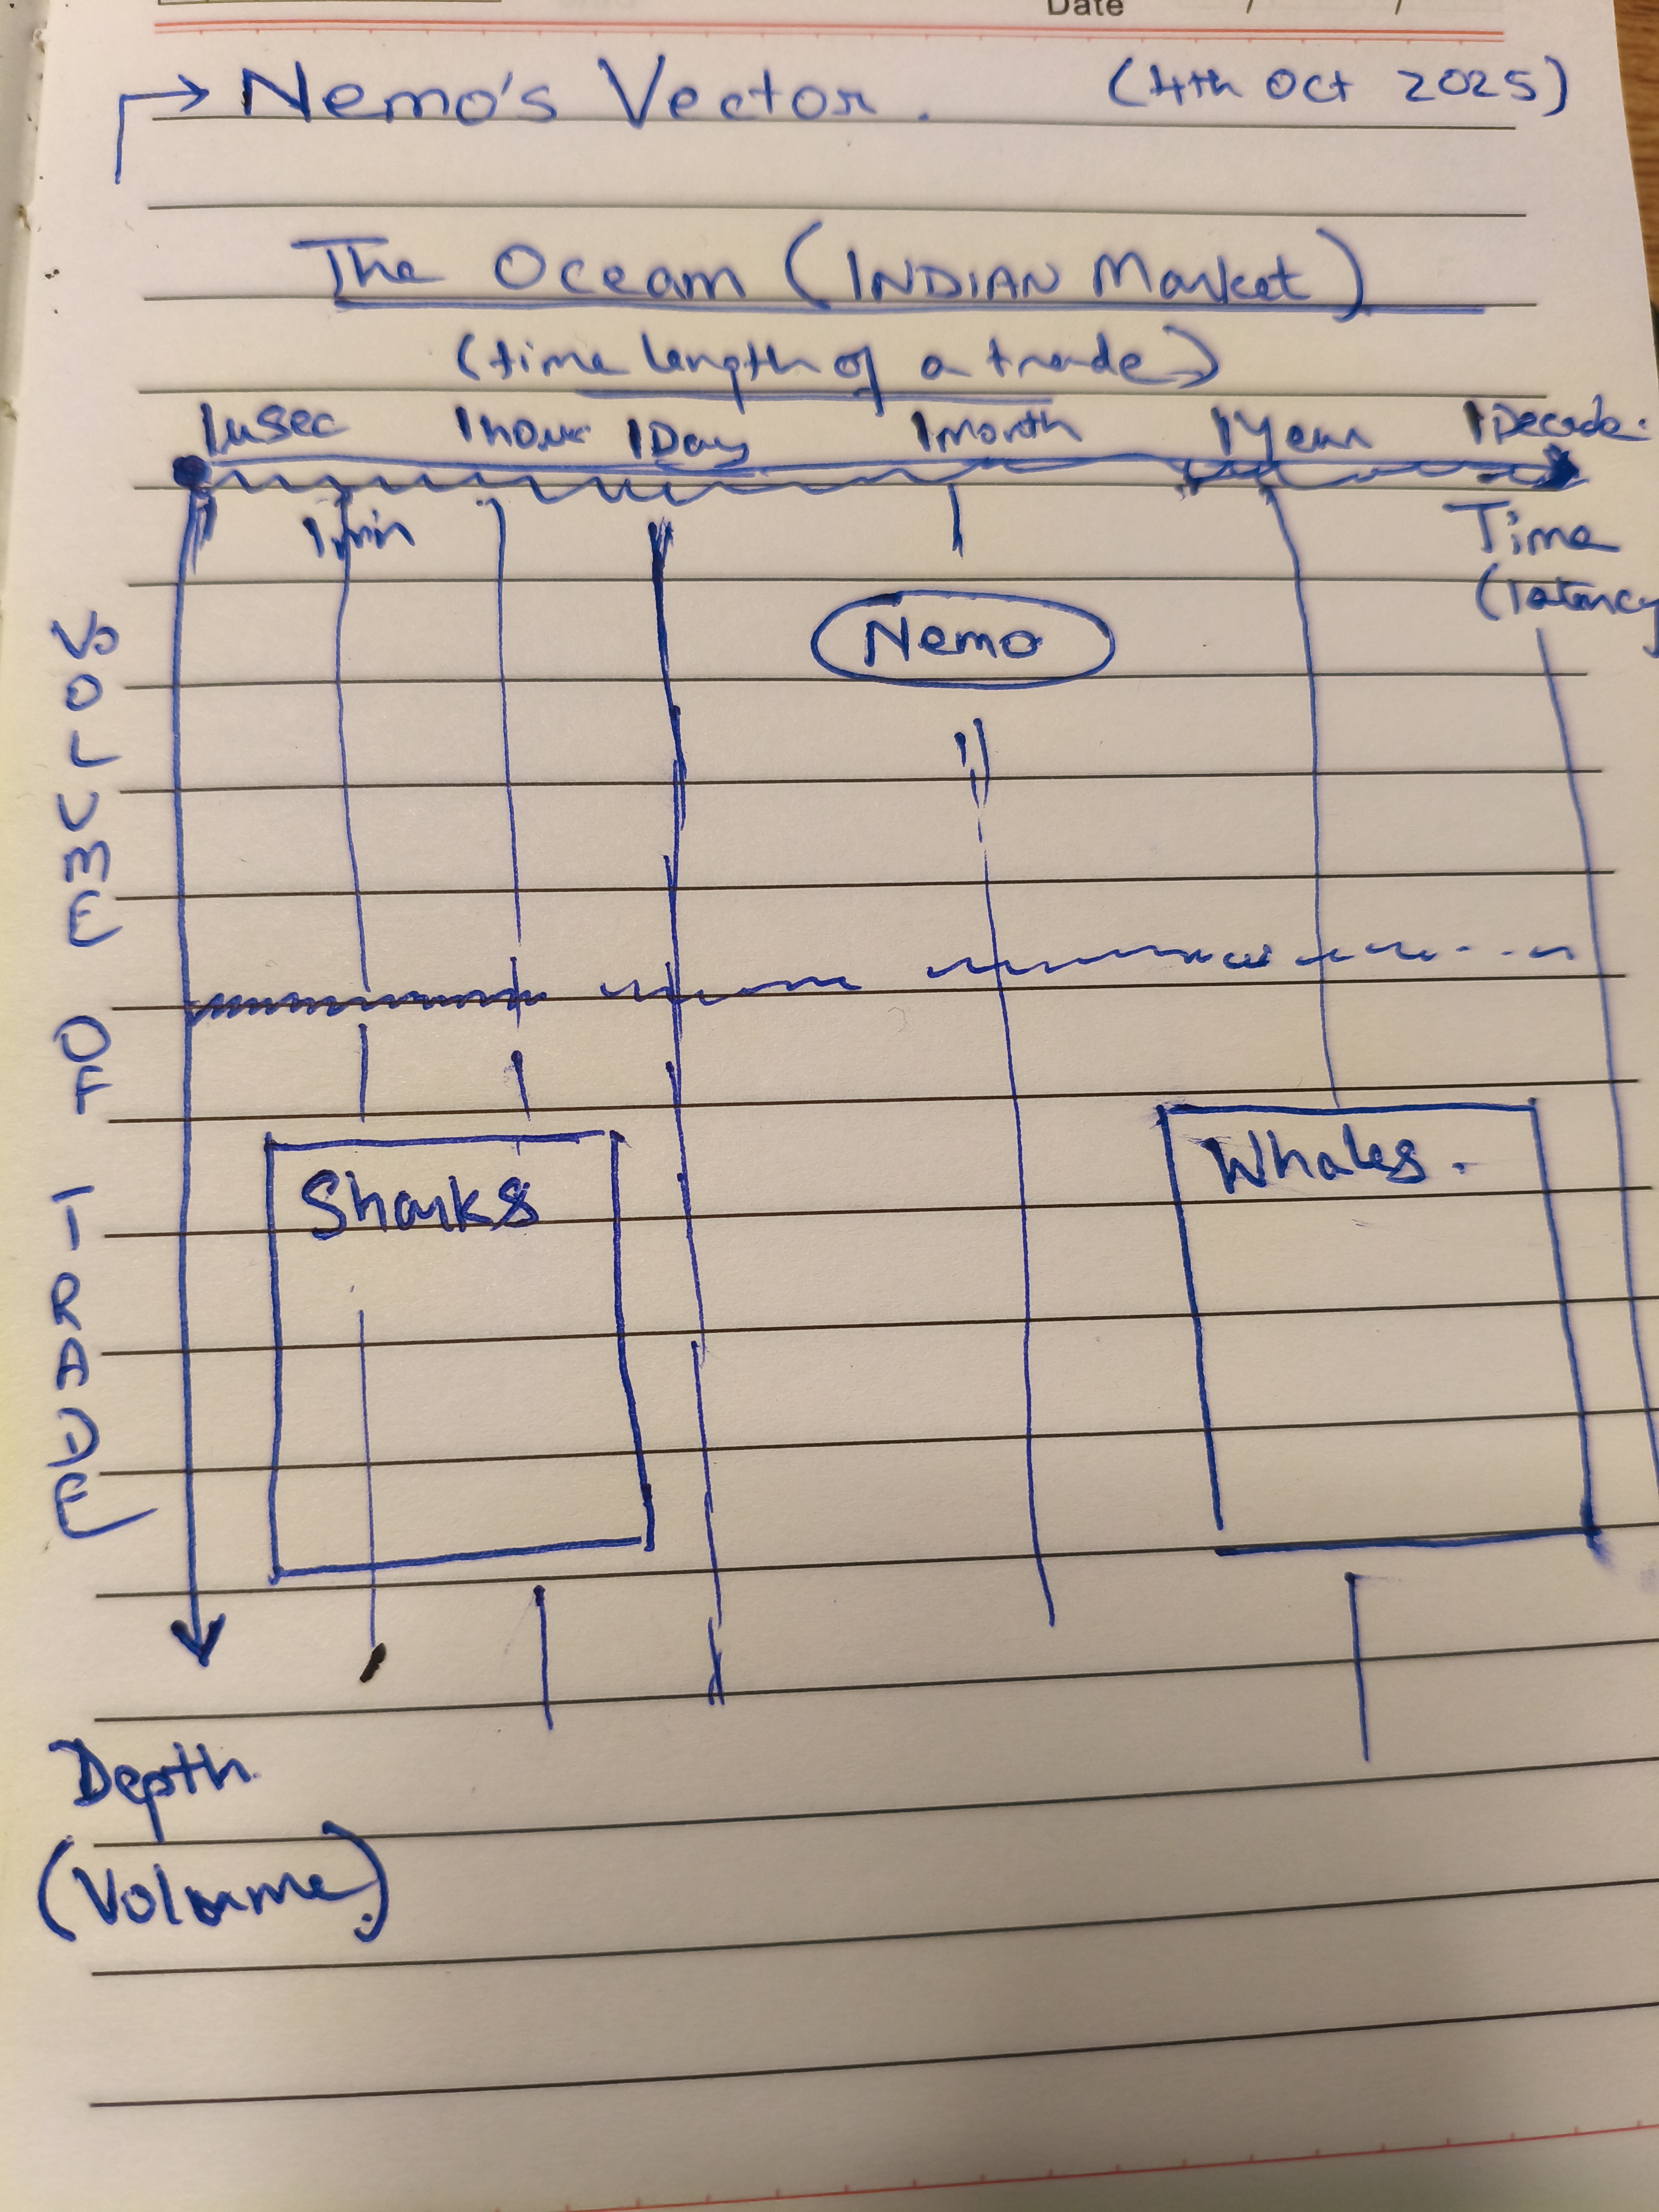 Date / /
→ Nemo's Vector. (4th Oct 2025)
The Ocean (INDIAN Market)
(time length of a trade)
1usec 1hour 1Day 1month 1Year 1Decade.
1min
Time
(latency
Nemo
VOLUME OF TRADE
Sharks
Whales.
Depth.
(Volume.)